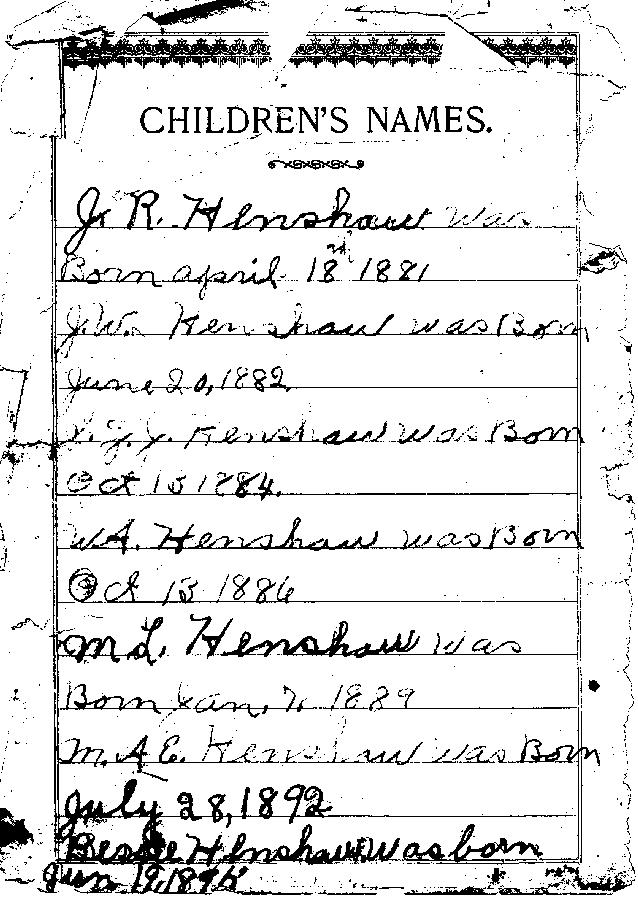 CHILDREN'S NAMES.
J. R. Henshaw was
Born april 18 1881
J.W. Henshaw was Born
June 20, 1882
Henshaw was Born
Oct 13 1884.
W.A. Henshaw was Born
Oct 13 1886
M L. Henshaw was
Born Jan, 7, 1889
M. A E. Henshaw was Born
July 28, 1892
Bessie Henshaw was born
Jun 19, 1895